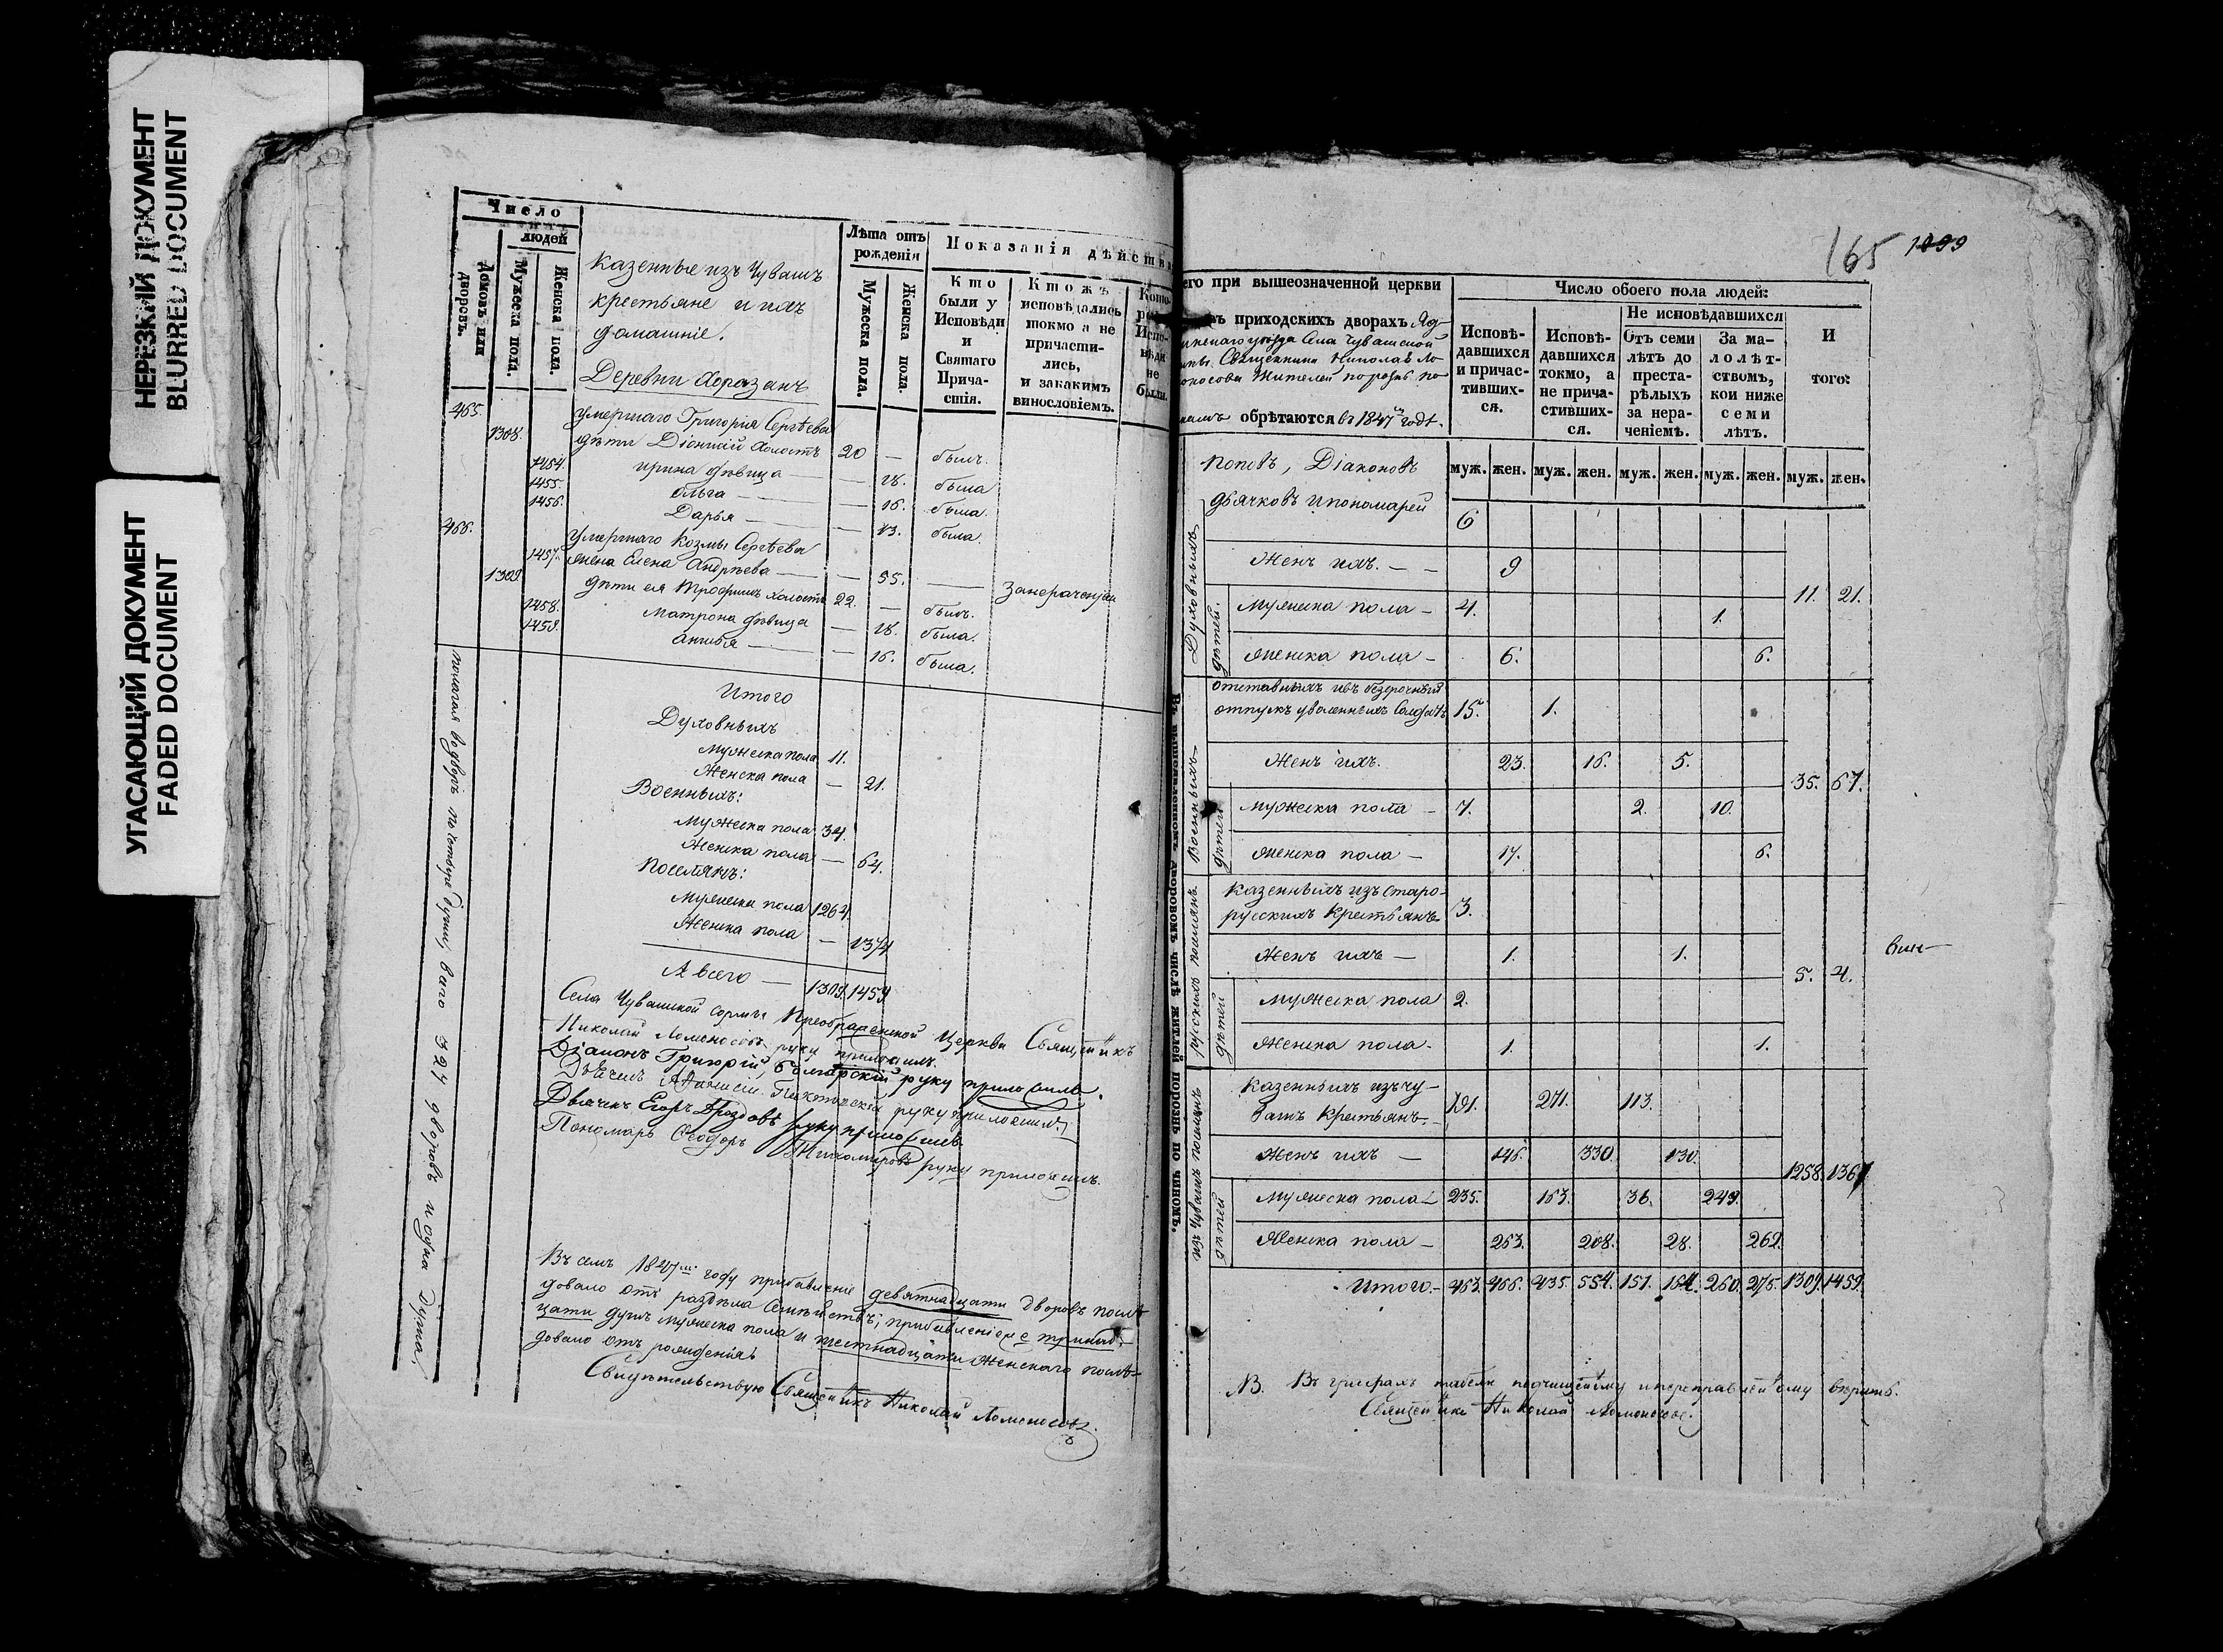 НЕРЕЗКИЙ ДОКУМЕНТ
BLURRED DOCUMENT
УГАСАЮЩИЙ ДОКУМЕНТ
FADED DOCUMENT
Число
людей
Домовъ или дворовъ.
Мужеска пола.
Женска пола.
Казенные изъ Чувашъ
крестьяне и ихъ
домашніе.
Деревни Хоразанъ
Лѣта отъ рожденія
Мужеска пола.
Женска пола.
Показанія дѣйств
Кто были у Исповѣди и Святаго Прича-стія.
Ктожъ исповѣдались токмо а не причасти-лись, и закакимъ винословіемъ.
Испо-вѣди не были.
465. умершаго Григорія Сергѣева
1308. дѣти Діонисій холостъ 20 — былъ.
1454. Ирина дѣвица — 18. была
1455. Ольга — 16. была.
1456. Дарья — 13. была.
466. умершаго Козмы Сергѣева
1457. жена Елена Андрѣева — 55. —
1309. дѣти ея Трофимъ холостъ 22. — былъ.
1458. Матрона дѣвица — 18. была.
1459. — 16. была.
Итого
Духовныхъ
Мужеска пола 11.
Женска пола — 21.
Военныхъ:
Мужеска пола 34.
Женска пола — 64.
Поселянъ:
Мужеска пола 1264.
Женска пола — 1374
А всего — 1309. 1459
Села Чувашской Сормы Преображенской Церкви Священникъ
Николай Ломоносовъ руку приложилъ.
Діаконъ Григорій руку приложилъ.
руку приложилъ.
Дьячекъ Егоръ Гроздовъ руку приложилъ
Пономарь Ѳеодоръ Тихомировъ руку приложилъ.
Въ семъ 1847мъ году прибавленіе девятнадцати дворовъ послѣ-
довало отъ раздѣла семействъ; прибавленіе тринад-
цати душъ мужеска пола и шестнадцати женскаго послѣ-
довало отъ рожденія
Свидѣтельствую Священникъ Николай Ломоносовъ.
165 1099
его при вышеозначенной церкви
приходскихъ дворахъ Яд-
ринскаго уѣзда Села Чувашской
Священника Николая Ло-
моносова жителей порознь по
обрѣтаются въ 1847м годѣ.
Число обоего пола людей:
Исповѣ-давшихся и причас-тивших-ся.
Исповѣ-давшихся токмо, а не прича-стивших-ся.
Не исповѣдавшихся
Отъ семи лѣтъ до преста-рѣлыхъ за нера-ченіемъ.
За ма-лолѣт-ствомъ, кои ниже семи лѣтъ.
И того:
муж. жен. муж. жен. муж. жен. муж. жен. муж. жен.
Духовныхъ
Поповъ, Діаконовъ
дьячковъ и пономарей 6
Женъ ихъ. — 9
11. 21.
дѣтей.
Мужеска пола — 4. 1.
Женска пола — 6. 6.
Военныхъ
отставныхъ и въ безсрочный
отпускъ уволенныхъ Солдатъ 15. 1.
Женъ ихъ. 23. 16. 5.
35. 67.
дѣтей
Мужеска пола — 7. 2. 10.
Женска пола — 17. 6.
русскихъ поселянъ
Казенныхъ изъ старо-
русскихъ Крестьянъ 3.
Женъ ихъ — 1. 1.
5. 4.
дѣтей
Мужеска пола 2.
Женска пола. 1. 1.
изъ Чувашъ поселянъ
Казенныхъ изъ чу-
вашъ Крестьянъ 191. 271. 113.
Женъ ихъ — 146. 330. 130.
1258. 1367
дѣтей
Мужеска пола 235. 163. 36. 249.
Женска пола — 263. 208. 28. 262.
Итого. 463. 466. 435. 554. 151. 164. 260. 275. 1309. 1459.
Въ вышеозначенномъ дворовомъ числѣ жителей порознь по чиномъ.
NB. Въ графахъ табели подчищенному и переправленному вѣрить.
Священникъ Николай Ломоносовъ.